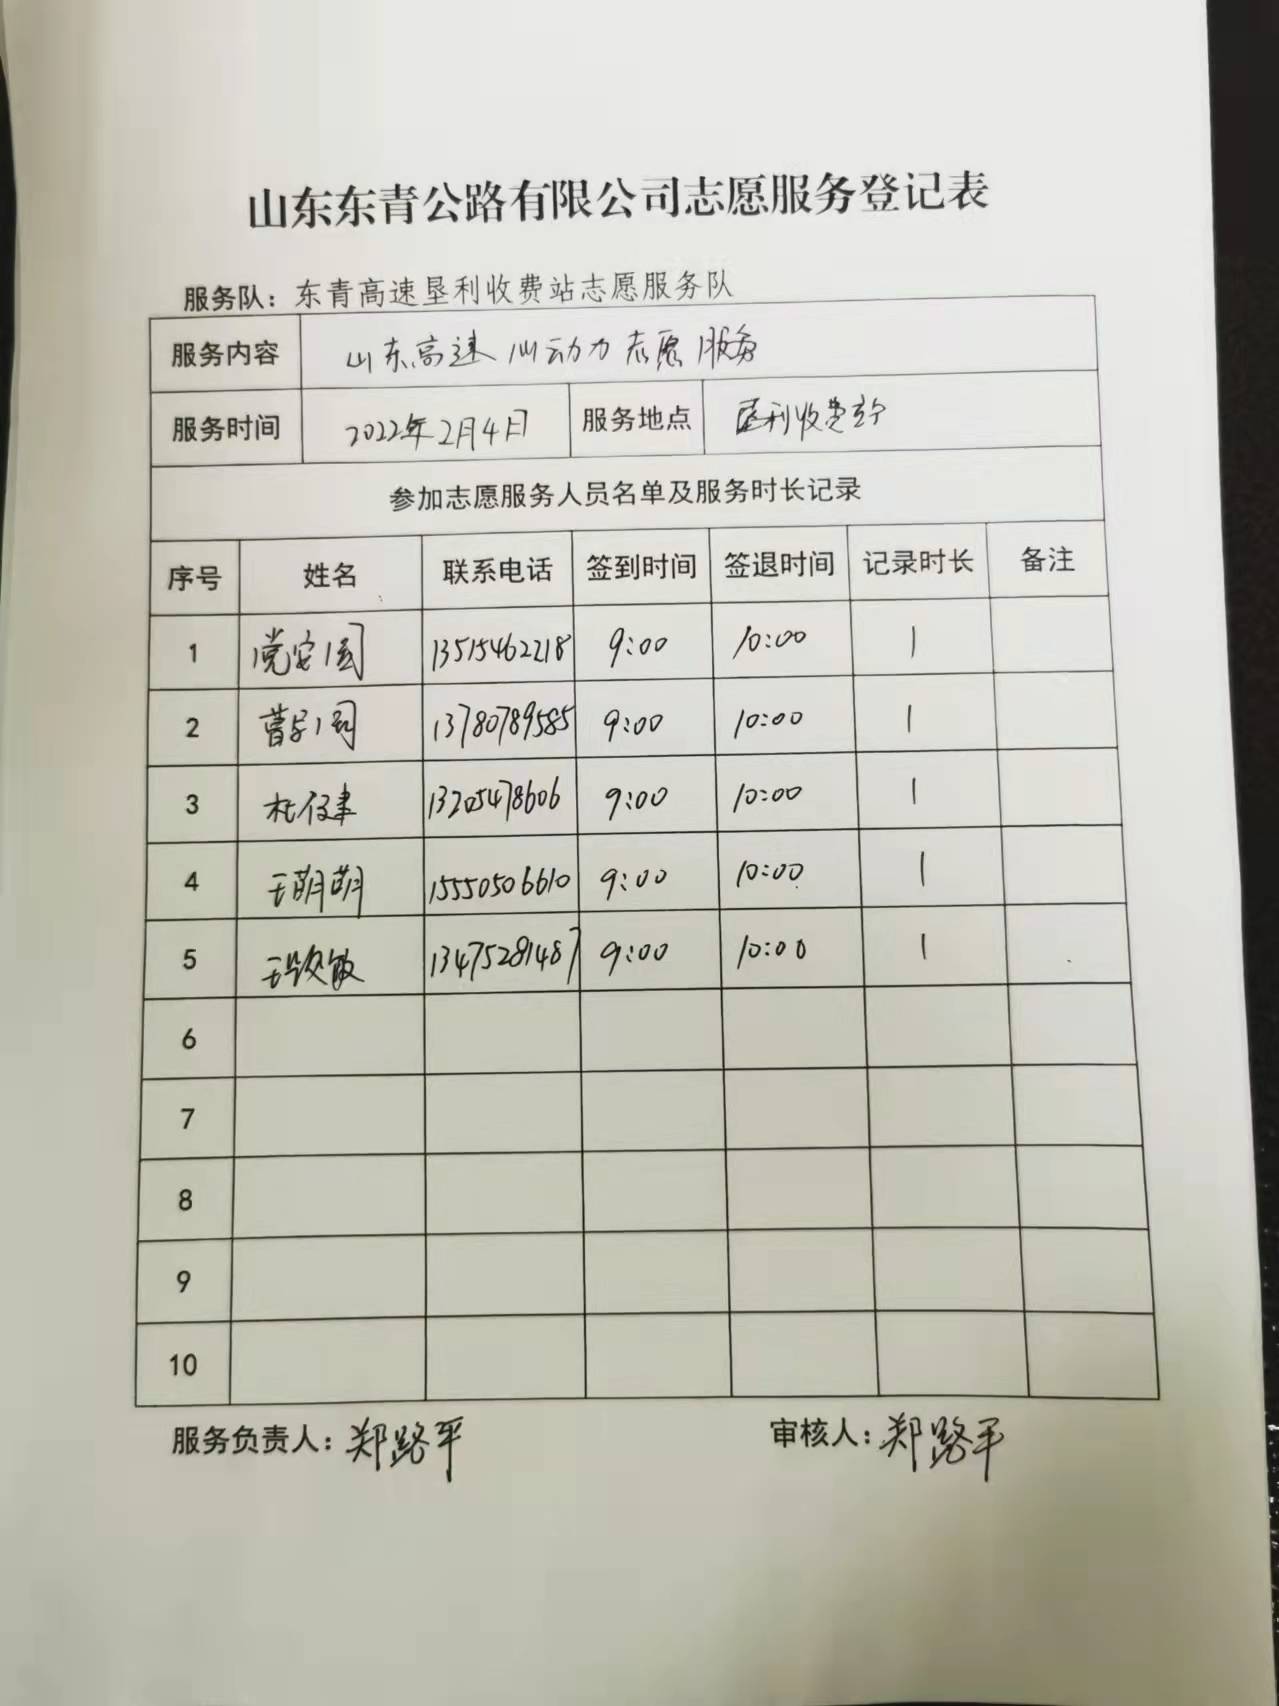 山东东青公路有限公司志愿服务登记表
服务队：东青高速垦利收费站志愿服务队
服务内容 山东高速心动力志愿服务
服务时间 2022年2月4日 服务地点 垦利收费站
参加志愿服务人员名单及服务时长记录
序号 姓名 联系电话 签到时间 签退时间 记录时长 备注
1 党安国 13515462218 9:00 10:00 1
2 13780789585 9:00 10:00 1
3 13205478606 9:00 10:00 1
4 王萌萌 15550506610 9:00 10:00 1
5 13475281487 9:00 10:00 1
6
7
8
9
10
服务负责人：郑路平 审核人：郑路平